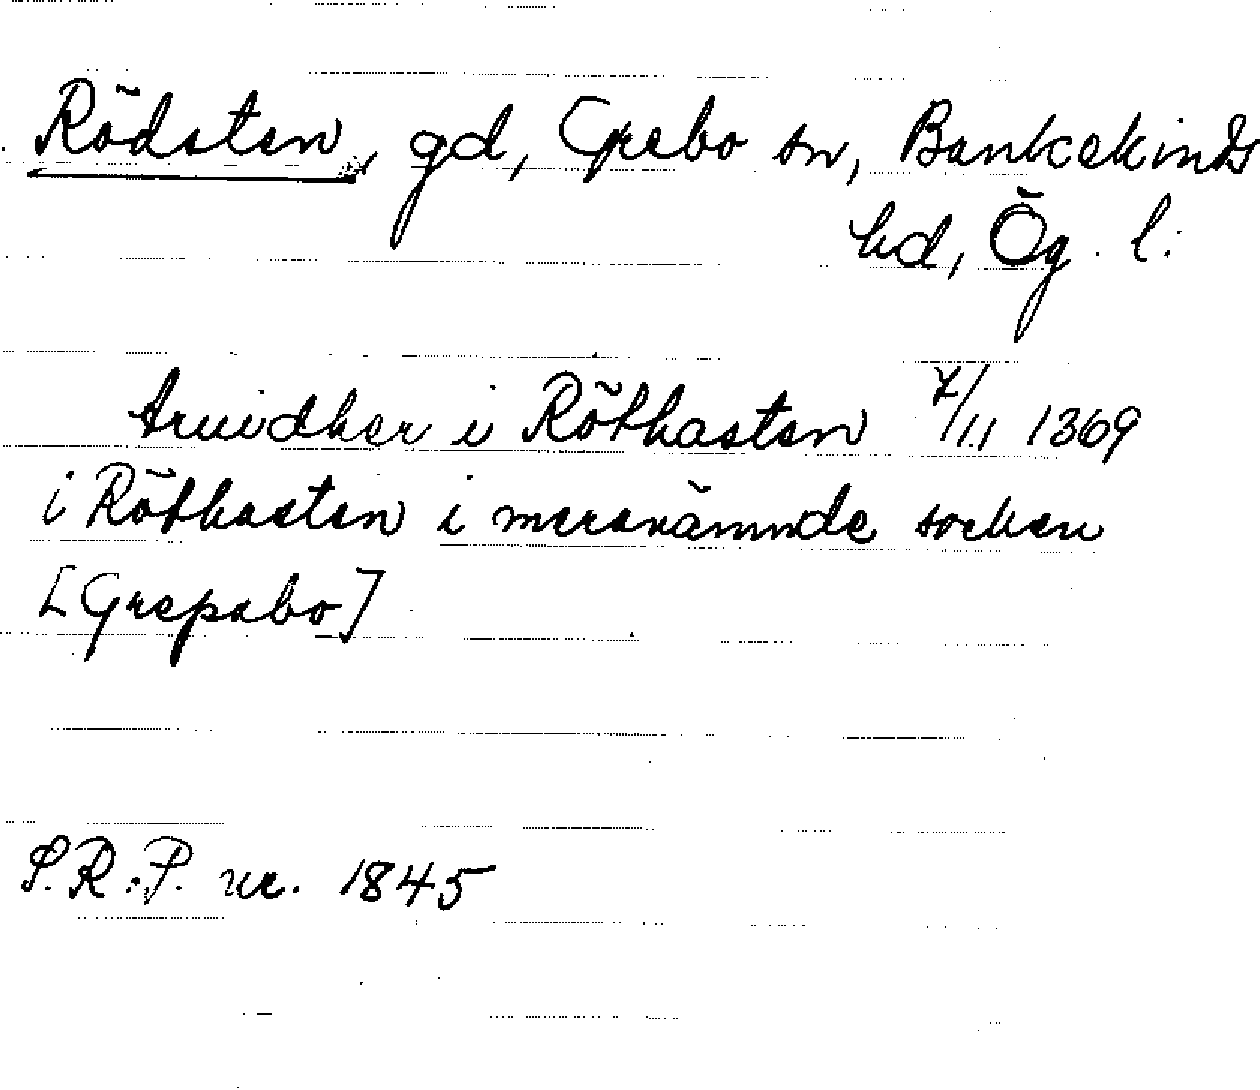 Rödsten, gd, Grebo sn, Bankekinds
hd, Ög. l.
Aruidher i Röthasten 7/11 1369
i Röthasten i meranämnde socken
[Grepabo]
S.R.P. nr. 1845